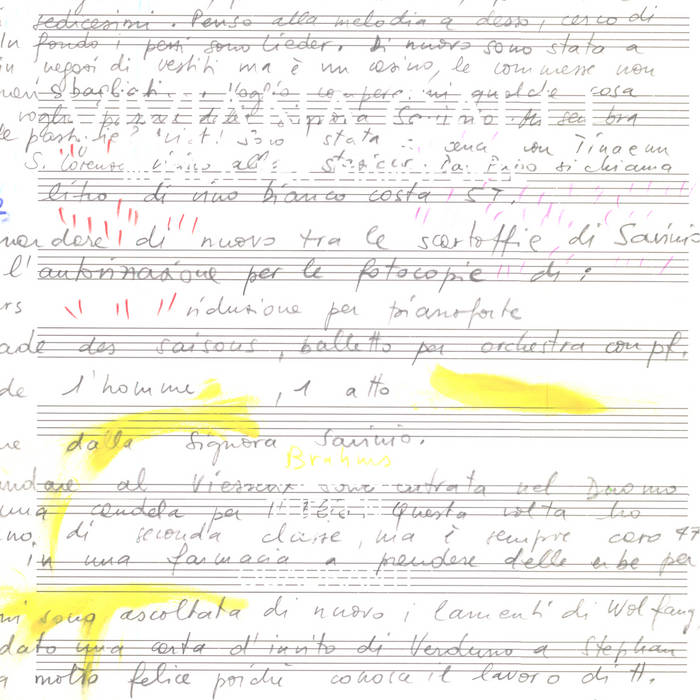 sedicesimi. Penso alla melodia adesso, cerco di
In fondo i pezzi sono Lieder. Di nuovo sono stata a
in negozi di vestiti ma è un casino, le commesse non
sbagliati. Voglio comperarmi qualche cosa
Savinio. Mi sembra
sono stata a cena con Tina e un
S. Lorenzo vicino si chiama
litro, di vino bianco costa 57.
di nuovo tra le scartoffie di Savinio
l'autorizzazione per le fotocopie di:
riduzione per pianoforte
ade des saisons, balletto per orchestra con pf.
de l'homme, 1 atto
dalla Signora Savinio.
Brahms
andare al sono entrata nel Duomo
una candela per Questa volta ho
di seconda classe, ma è sempre caro 47
in una farmacia a prendere delle erbe per
mi sono ascoltata di nuovo i lamenti di Wolfgang
dato una carta d'invito di Verduno a Stephan
a molto felice poichè conosce il lavoro di H.